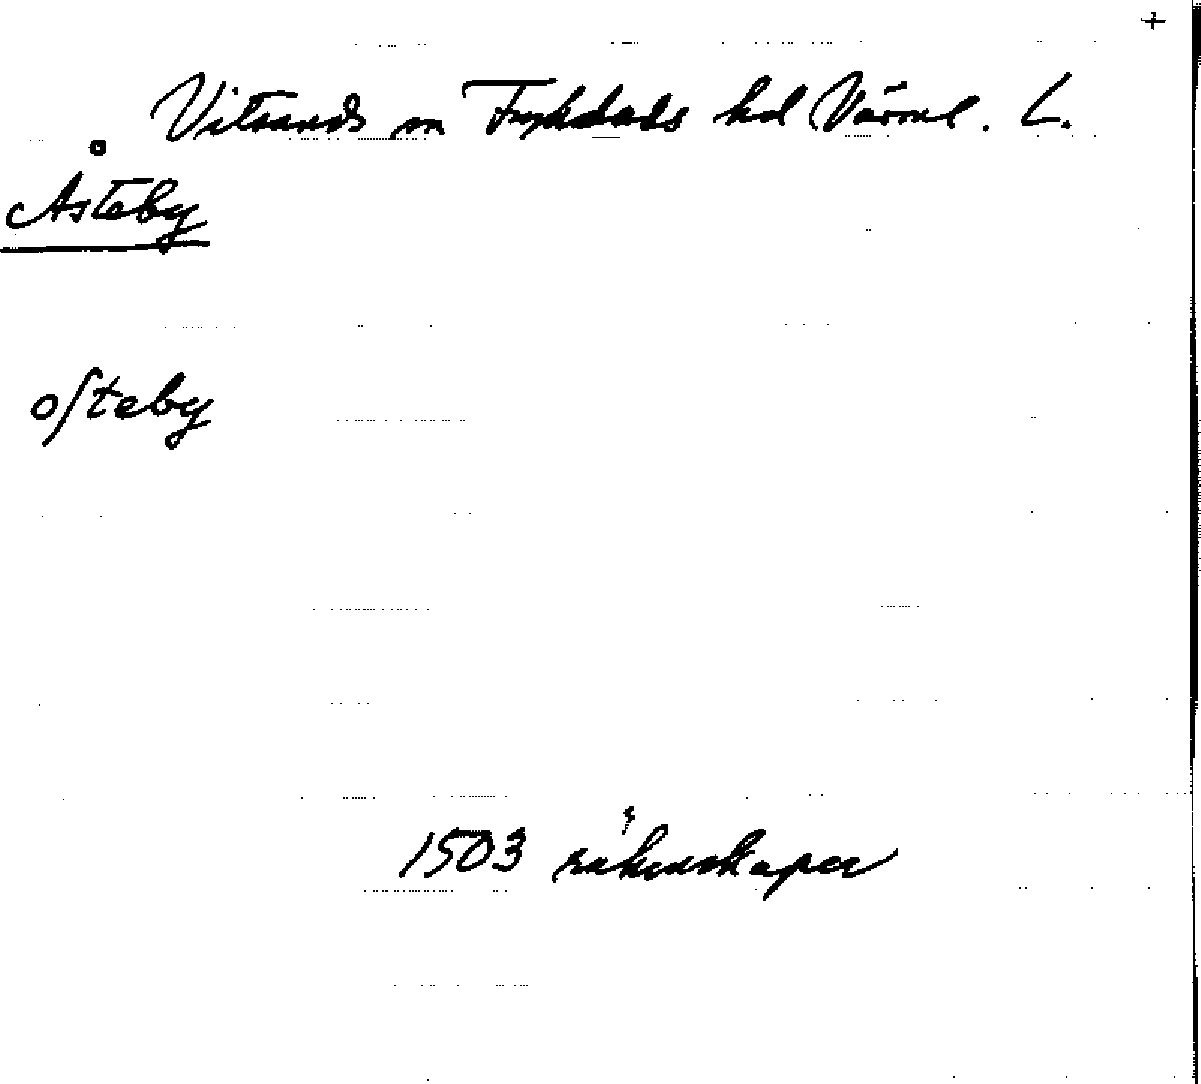 +
Vitsands sn Fryksdals hd Värml. L.
Åsteby
ofteby
1503 räkenskaper